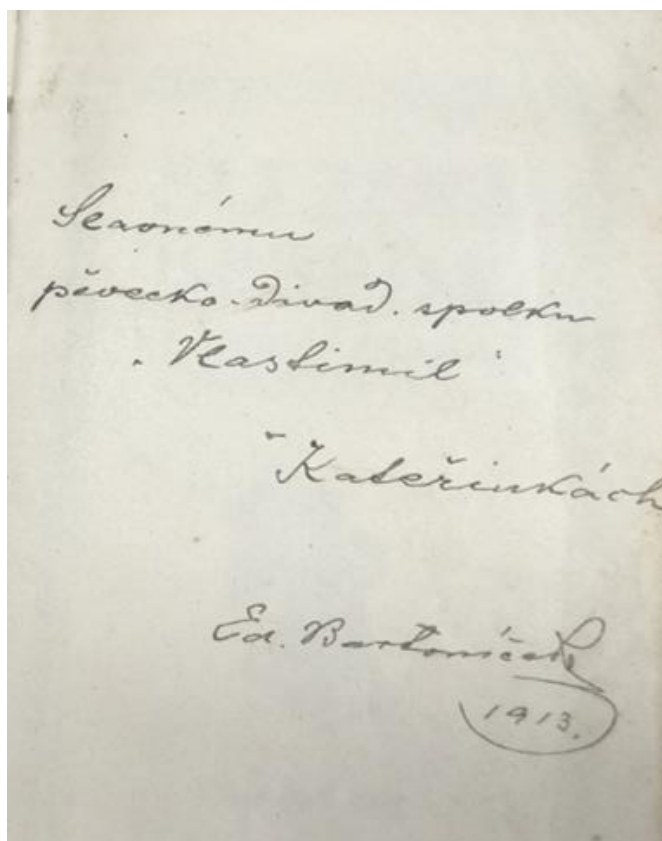 Slavnému
pěvecko-divad. spolku
„Vlastimil“
v Kateřinkách
Ed. Bartoníček
1913.